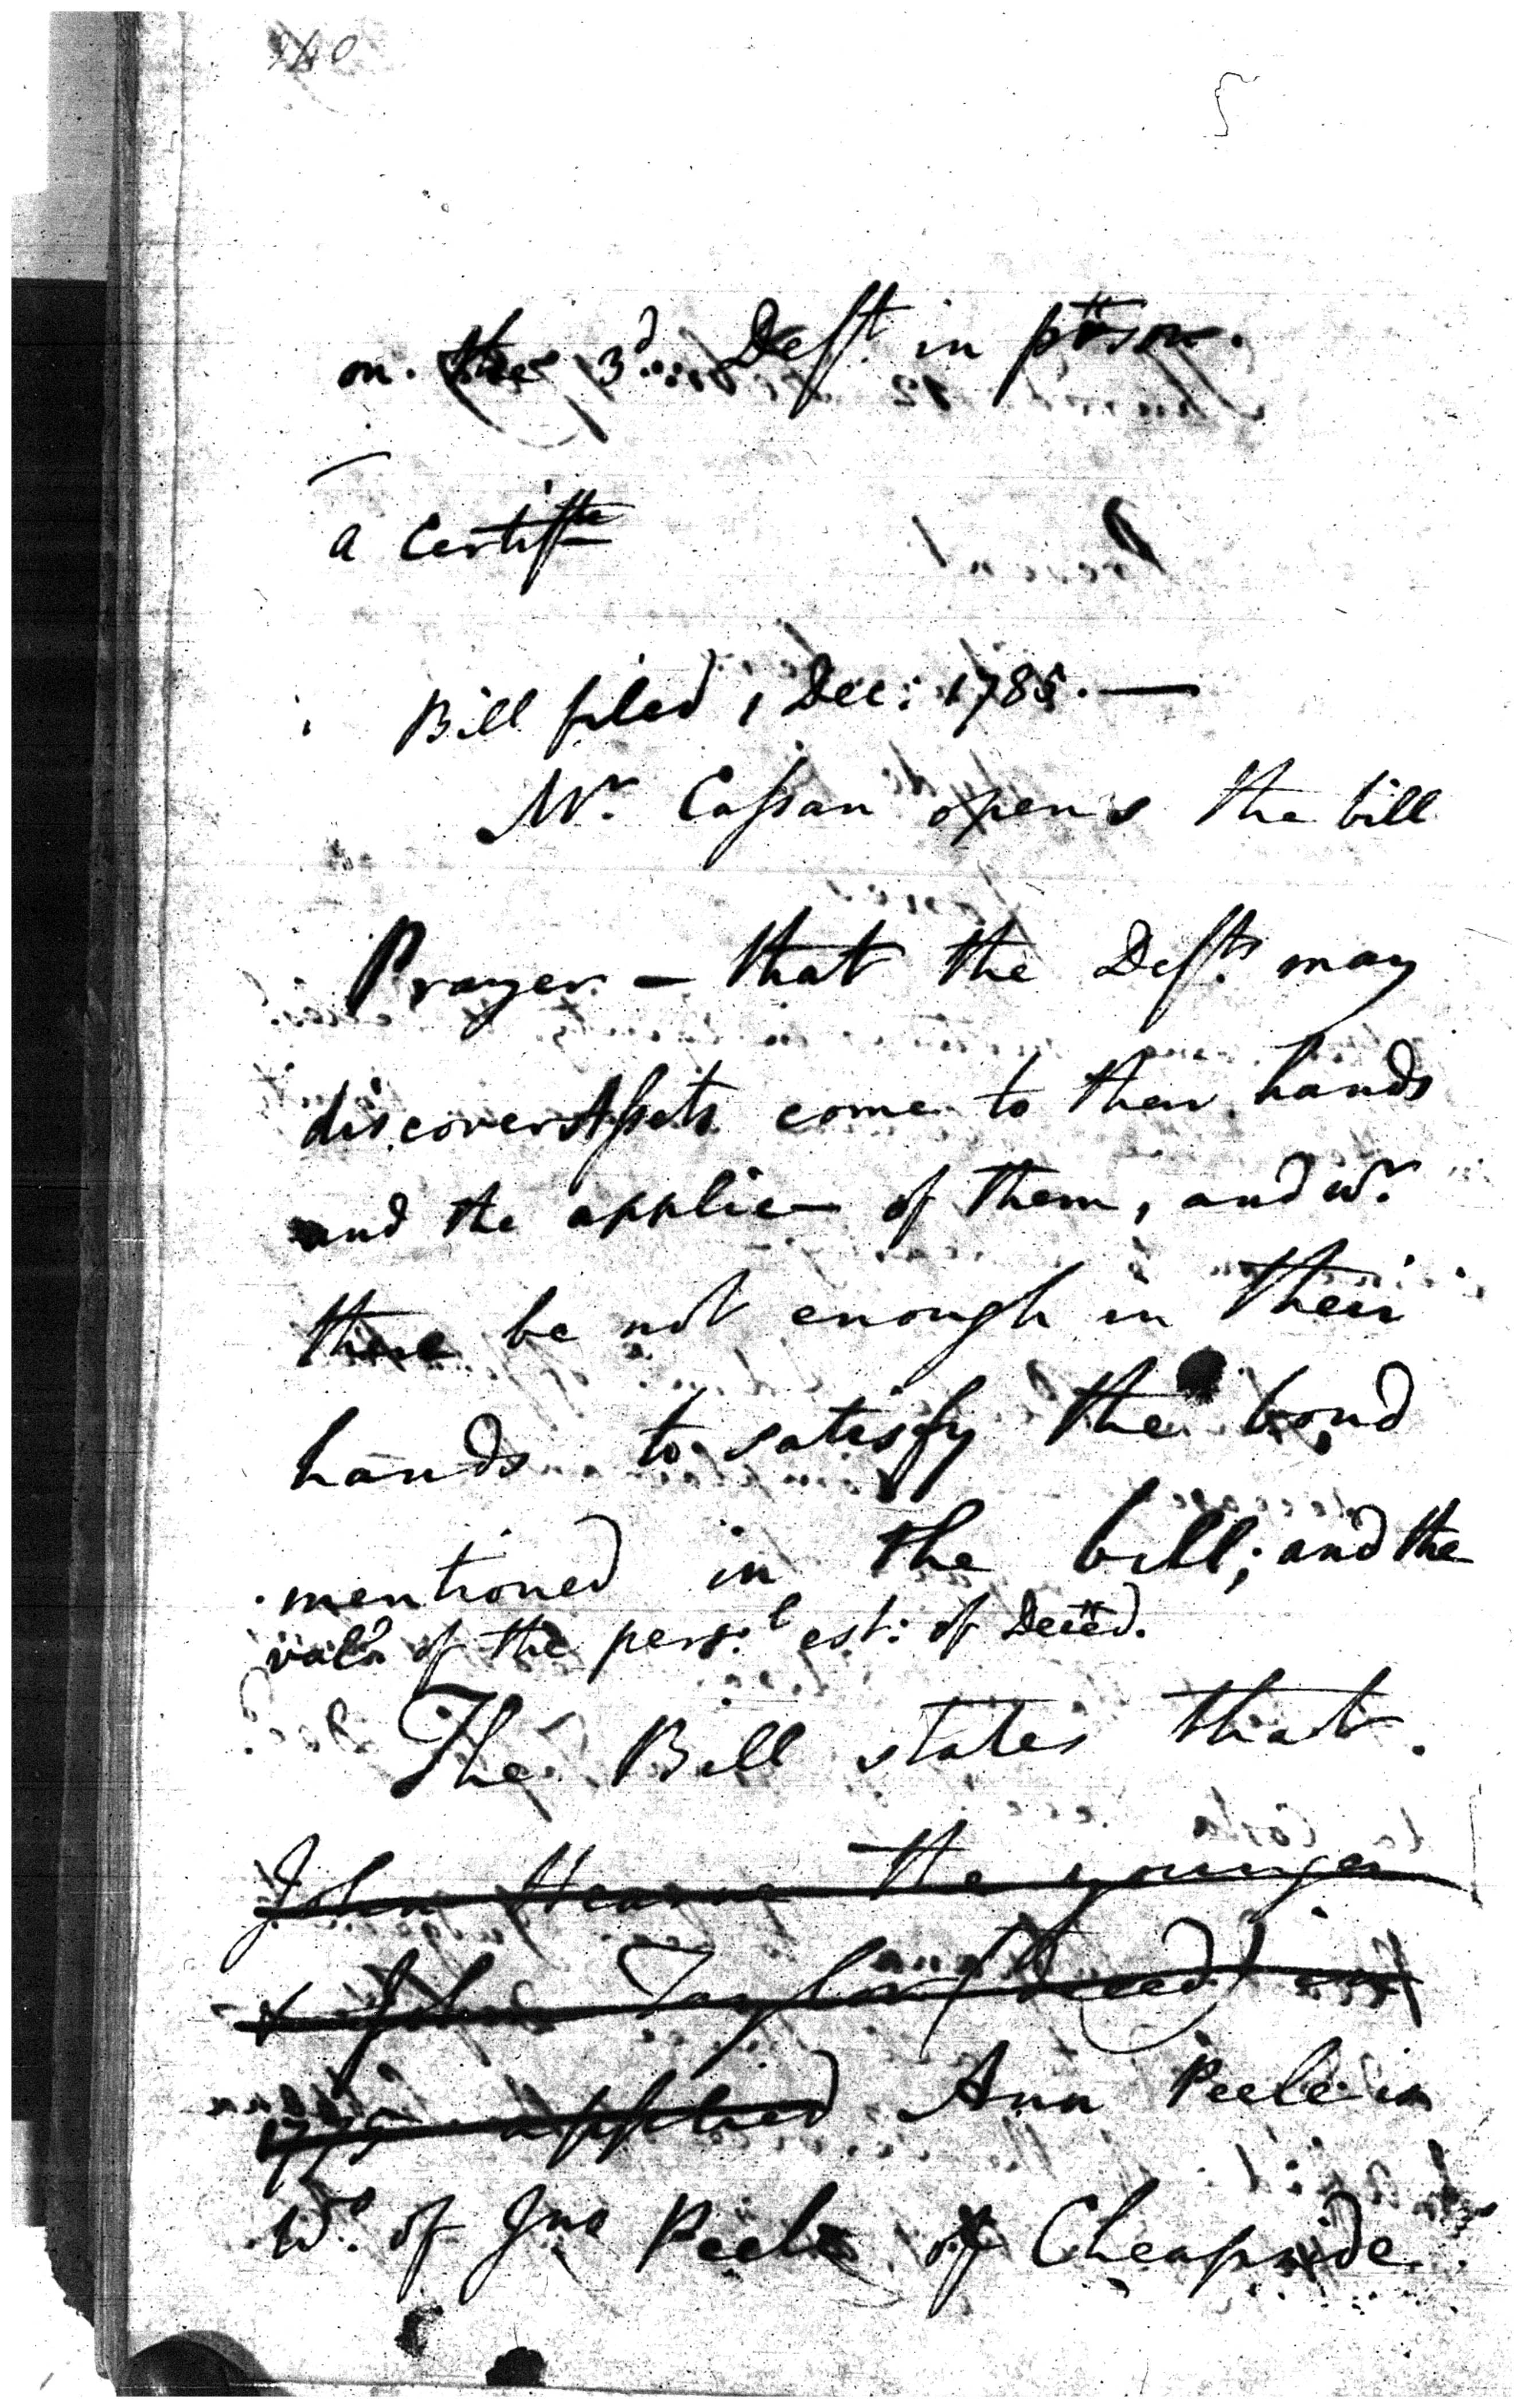 240
5
on the 3d. Deft. in prison.
a Certifte
Bill filed 1 Dec: 1785. —
Mr. Cassan opens the bill
Prayer — that the Defts. may
discover Assets come to their hands
and the applic— of them, and wr.
there be not enough in their
hands to satisfy the bond
mentioned in the bill; and the
val. of the persl. est: of Deced.
The Bill states that
John Hearne the younger
& John Taylor (Deced)
applied Ann Peele is
Wo. of Jno Peele of Cheapside